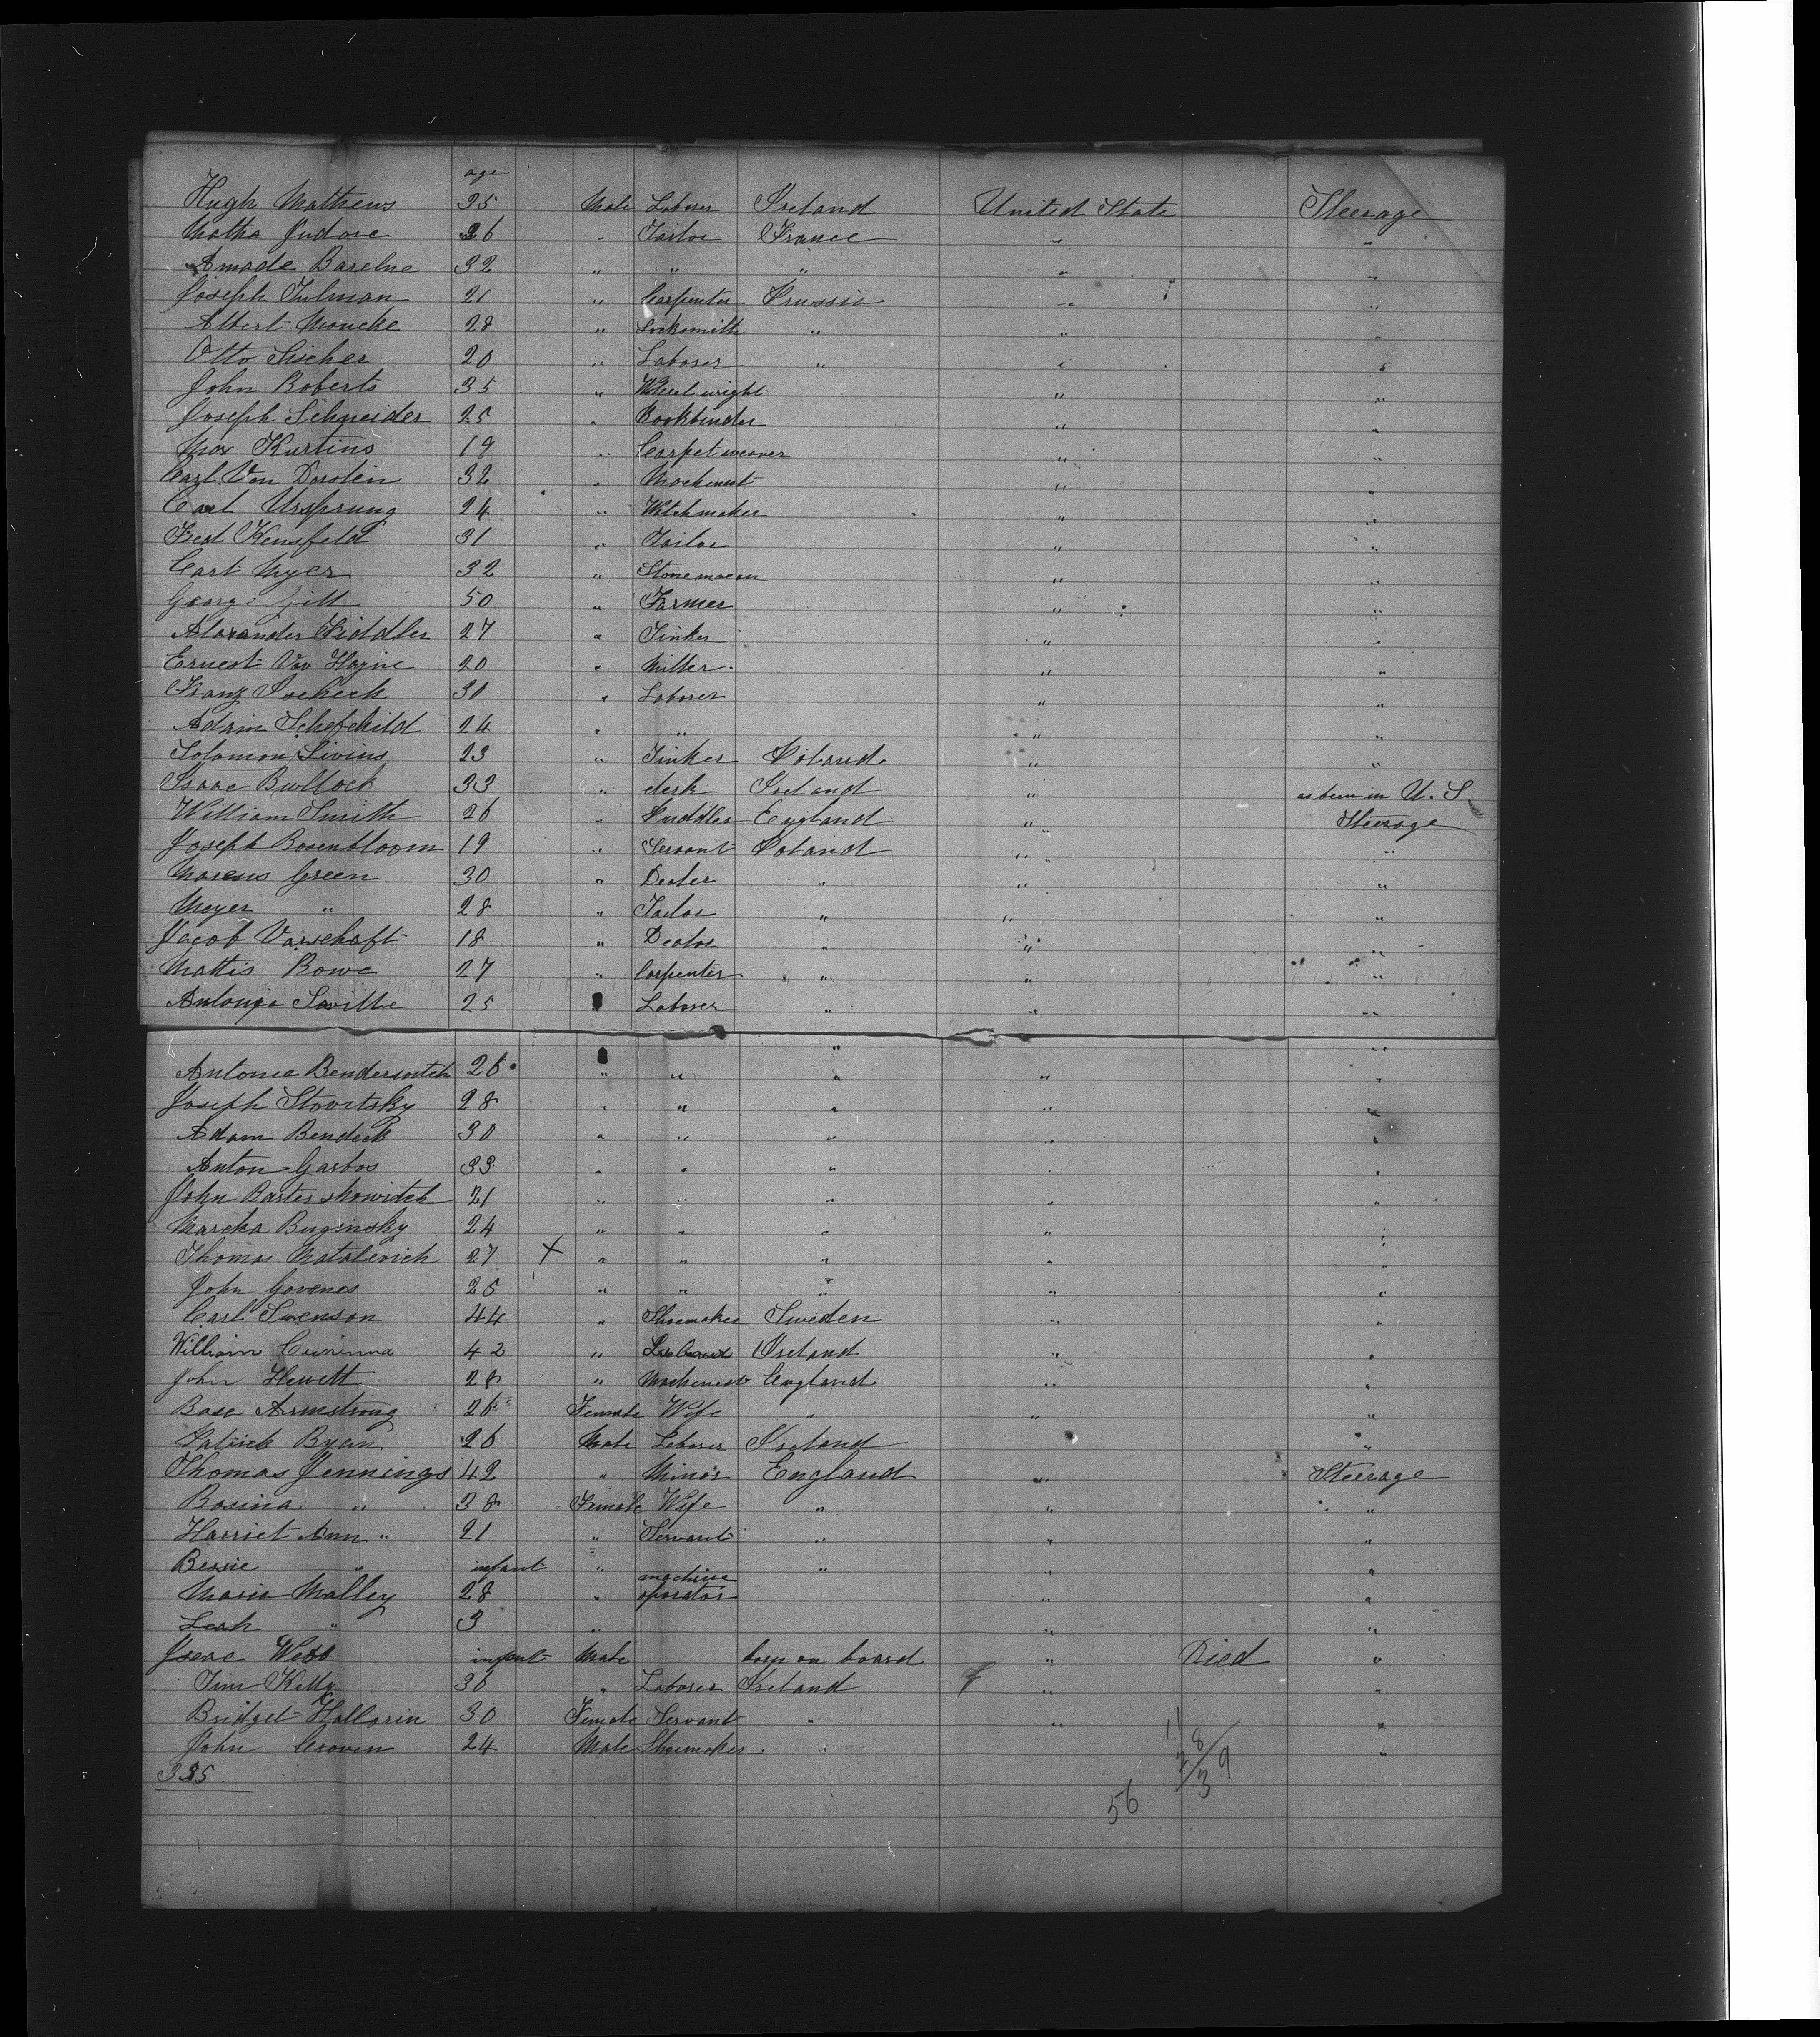 age
Hugh Mathews 35 Male Laborer Ireland United State Steerage
Matha Judore 36 " Tailor France " "
Amade Barelne 32 " " " " "
Joseph Tulman 21 " Carpenter Prussia " "
Albert Moncke 28 " Locksmith " " "
Otto Fischer 20 " Laborer " " "
John Roberts 35 " Wheel wright " "
Joseph Schneider 25 " Bookbinder " "
Max Kurtins 19 " Carpet weaver " "
Carl Von Dorstein 32 " Machinest " "
Carl Ursprung 24 " Watchmaker " "
Fred Kensfeld 31 " Tailor " "
Carl Myer 32 " Stone mason " "
George Gill 50 " Farmer " "
Alaxander Fiddler 27 " Tinker " "
Ernest Von Hagine 20 " Miller " "
Franz Pscheck 30 " Laborer " "
Adam Schofchild 24 " " " "
Solomon Livins 23 " Tinker Poland " "
Isaac Bullock 33 " clerk Ireland " as been in U.S.
William Smith 26 " Puddler England " Steerage
Joseph Rosenbloom 19 " Servant Poland " "
Marcus Green 30 " Dealer " " "
Moyer " 28 " Tailor " " "
Jacob Varschaft 18 " Dealor " " "
Mattis Bowe 27 " Carpenter " " "
Antonja Saville 25 Laborer " " "
Antonia Benderwitch 26 " " " " "
Joseph Stovitsky 28 " " " " "
Adam Bendeck 30 " " " " "
Anton Garbos 33 " " " " "
John Bartes showitch 21 " " " " "
Marcka Buginsky 24 " " " " "
Thomas Matalevich 27 X " " " " "
John Govenos 25 " " " " "
Carl Swenson 44 " Shoemaker Sweden " "
William Cuninna 42 " Ireland " "
John Hewitt 28 " Machinest England " "
Rose Armstrong 26 Female Wife " " "
Patrick Ryan 26 Male Laborer Ireland "
Thomas Jennings 42 " Minor England " Steerage
Rosina " 38 Female Wife " " "
Harriet Ann " 21 " Servant " " "
Bessie " infant " " " "
Maria Malley 28 " machine operator " "
Leah " 3 " " "
Isaac Webb infant Male born on board " Died "
Jim Kelly 30 " Laborer Ireland " "
Bridget Hallorin 30 Female Servant " " "
John Craven 24 Male Shoemaker " "
335
11
8
9
3
56